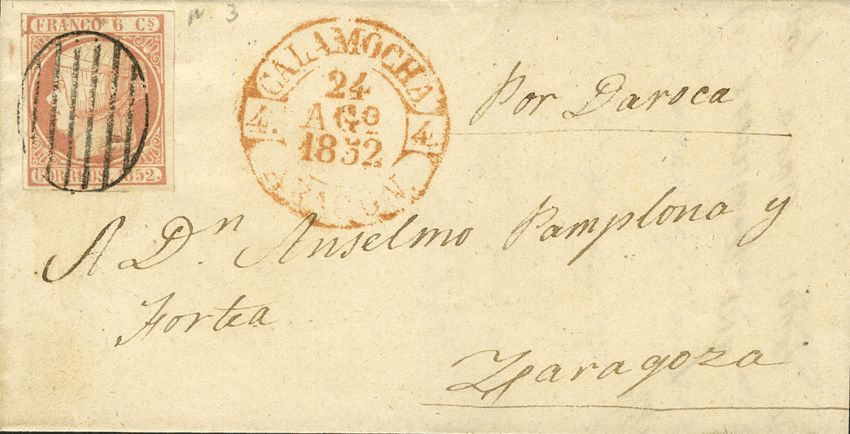 FRANCO 6 Cs
CORREOS 1852.
n. 3
CALAMOCHA
24
AGO
1852
4. 4.
ARAGON.
Por Daroca
A Dn Anselmo Pamplona y
Fortea
Zaragoza